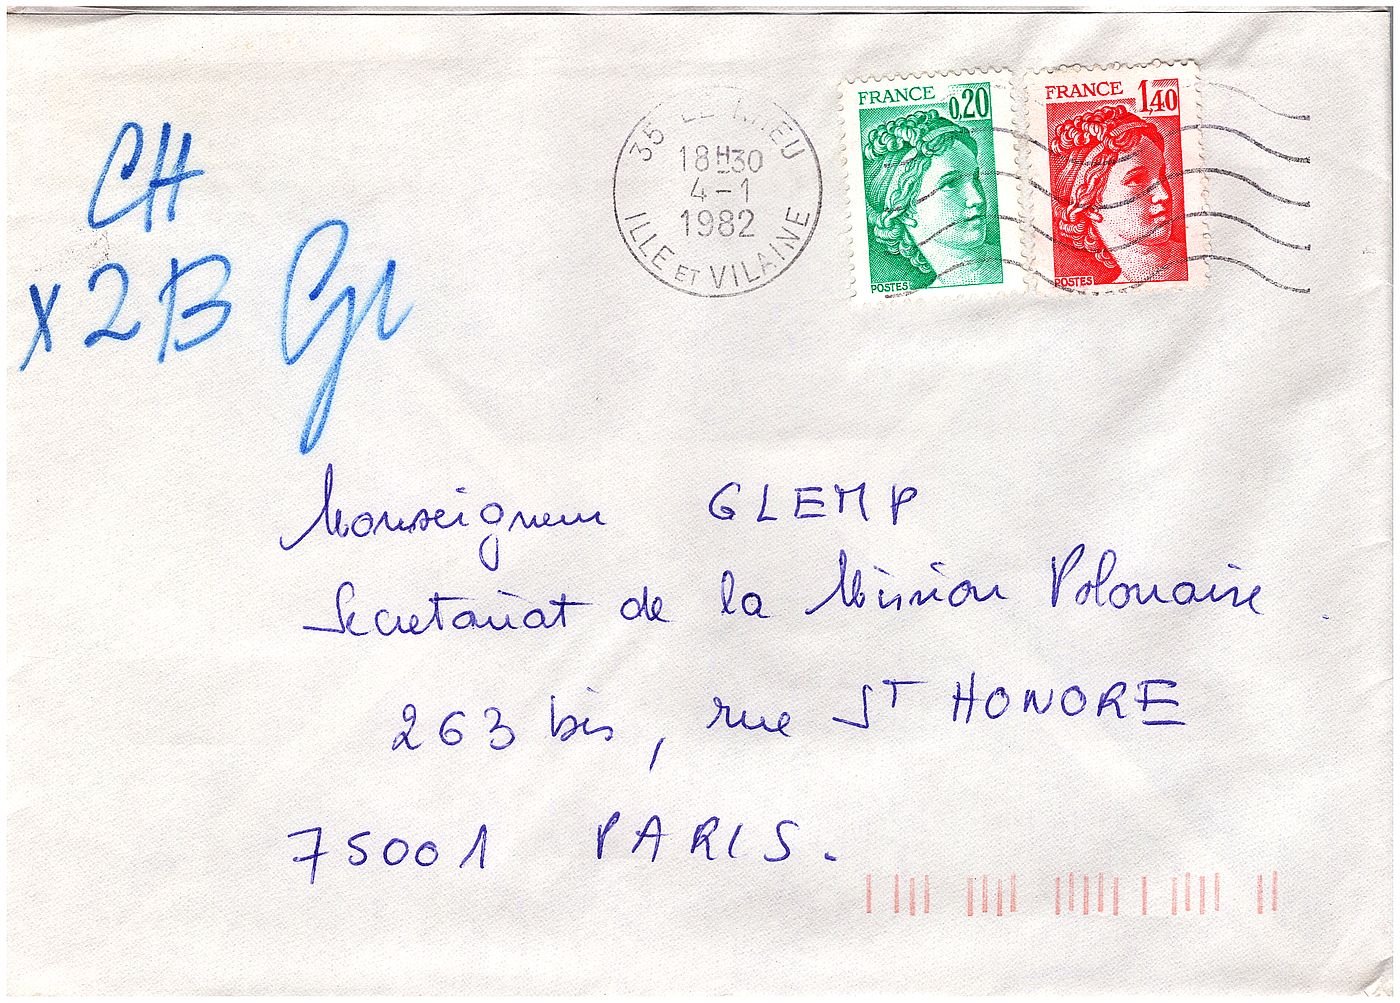 FRANCE 0,20
POSTES
FRANCE 1,40
POSTES
35 LE RHEU
18H30
4-1
1982
ILLE ET VILAINE
CH
x 2B Gr
Monseigneur GLEMP
Secretariat de la Mission Polonaise
263 bis, rue ST HONORE
75001 PARIS.